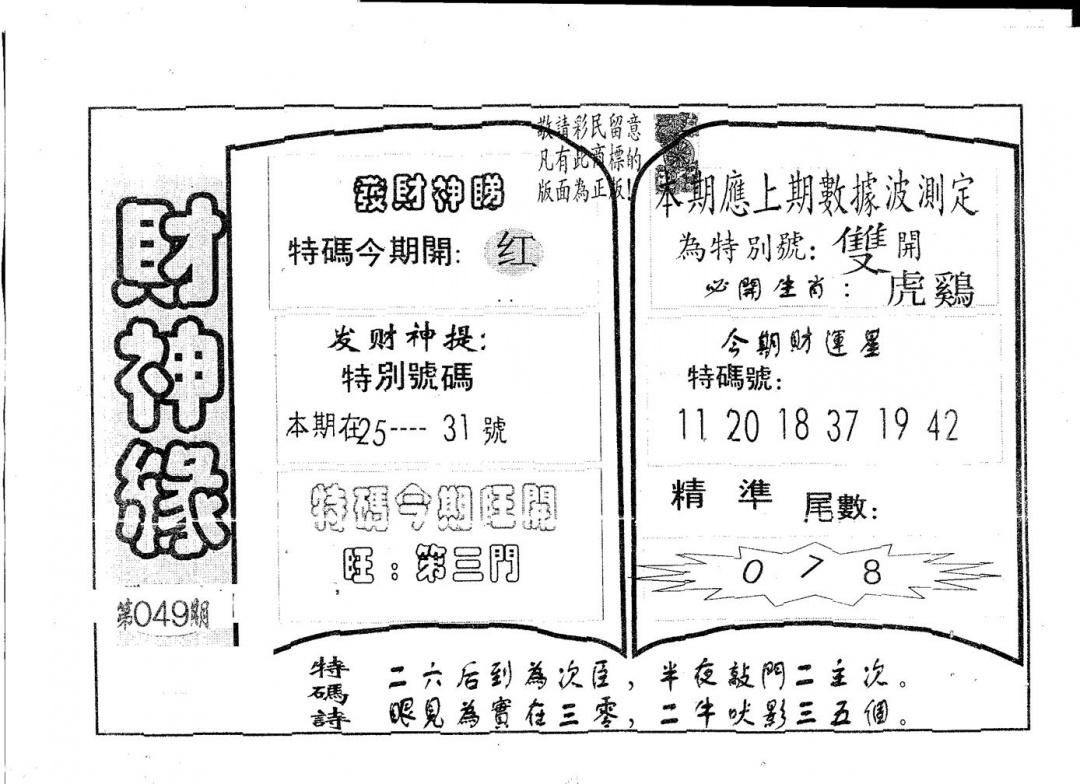 財神緣
第049期
敬請彩民留意
凡有此商標的
版面為正版!
發財神賜
特碼今期開: 红
发财神提:
特別號碼
本期在25---- 31 號
特碼今期旺開
旺: 第三門
本期應上期數據波測定
為特別號: 雙開
必開生肖: 虎鷄
今期財運星
特碼號:
11 20 18 37 19 42
精準 尾數:
0 7 8
特碼詩
二六后到為次臣，半夜敲門二主次。
眼見為實在三零，二牛吠影三五個。